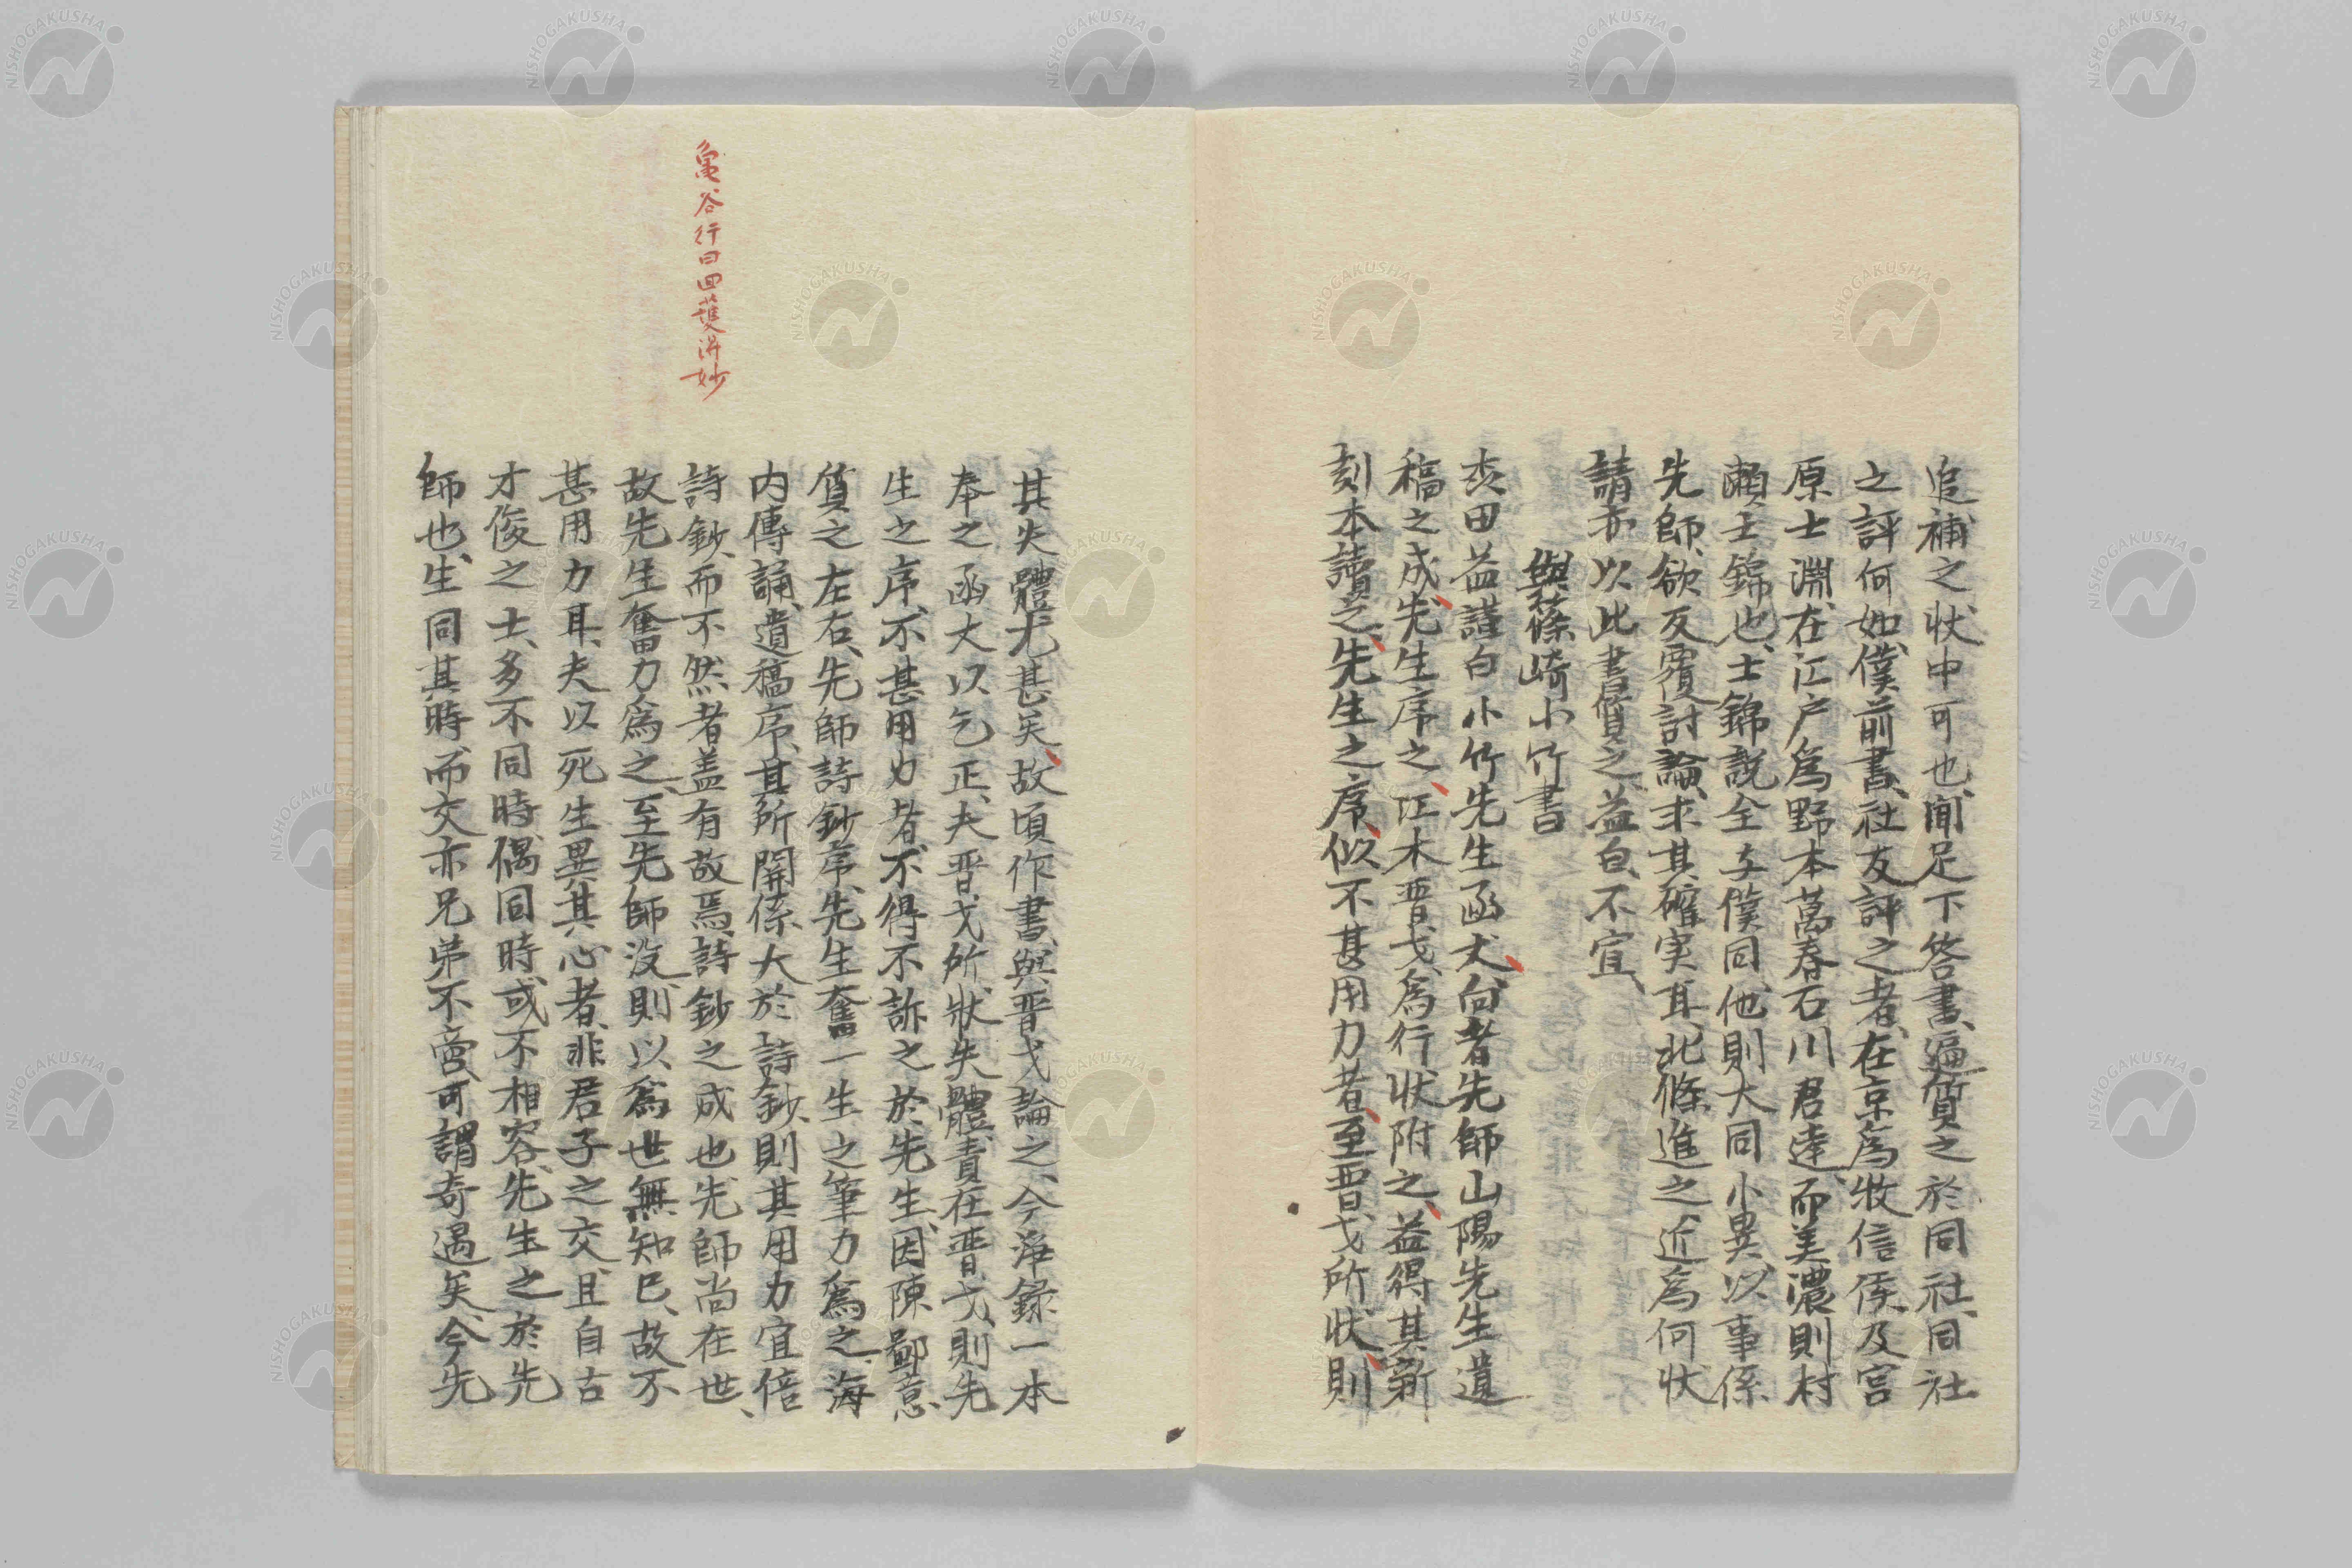 追補之状中可也、聞足下答書、遍質之於同社、同社
之評何如、僕前書、社友評之者、在京為牧信侯、及宮
原士淵、在江戸為野本萬春石川君達、而美濃則村
瀬士錦也、士錦説全与僕同、他則大同小異、以事係
先師、欲反覆討論、求其確実耳、北條進之、近為何状
請亦以此書質之、益白、不宣、
與篠崎小竹書
森田益謹白小竹先生函丈、向者先師山陽先生遺
稿之成、先生序之、江木晋戈、為行状附之、益得其新
刻本讀之、先生之序、似不甚用力者、至晋戈所状、則
其失體尤甚矣、故頃作書、與晋戈論之、今浄録一本
奉之函丈以乞正、夫晋戈所状失體、責在晋戈、則先
生之序、不甚用力者、不得不訴之於先生、因陳鄙意
質之左右、先師詩鈔序、先生奮一生之筆力為之、海
内傳誦、遺稿序、其所關係大於詩鈔、則其用力宜倍
詩鈔、而不然者蓋有故焉、詩鈔之成也、先師尚在世、
故先生奮力為之、至先師没、則以為世無知己、故不
甚用力耳、夫以死生異其心者、非君子之交、且自古
才俊之士、多不同時、偶同時、或不相容、先生之於先
師也、生同其時、而交亦兄弟不啻、可謂奇遇矣、今先
亀谷行曰四䕶得妙
NISHOGAKUSHA